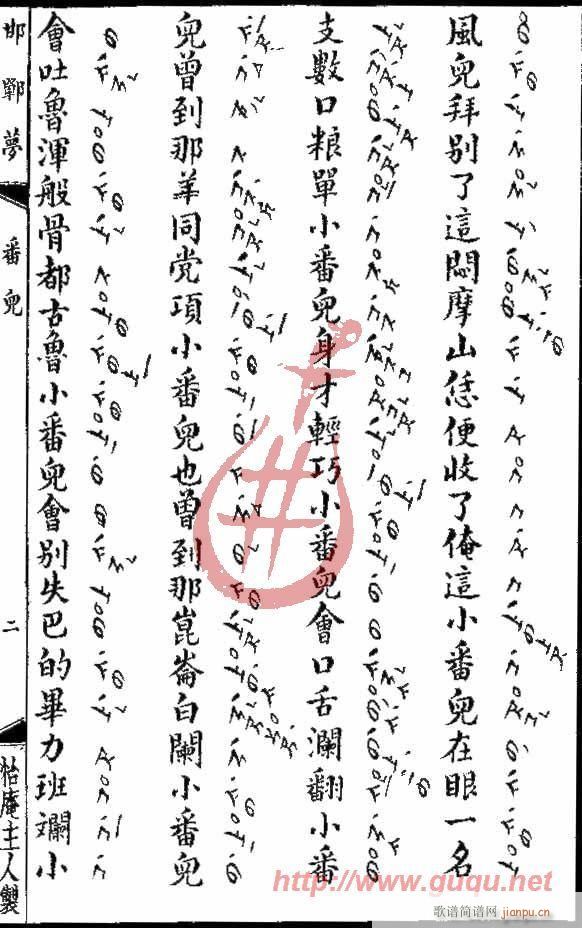 風兒拜別了這悶摩山恁便收了俺這小番兒在眼一名
支數口粮單小番兒身才輕巧小番兒會口舌瀾翻小番
兒曾到那羊同党項小番兒也曾到那崑崙白闌小番兒
會吐魯渾般骨都古魯小番兒會別失巴的畢力班斕小
邯鄲夢
番兒
二
怡庵主人製
http://www.guqu.net
歌谱简谱网
jianpu.cn